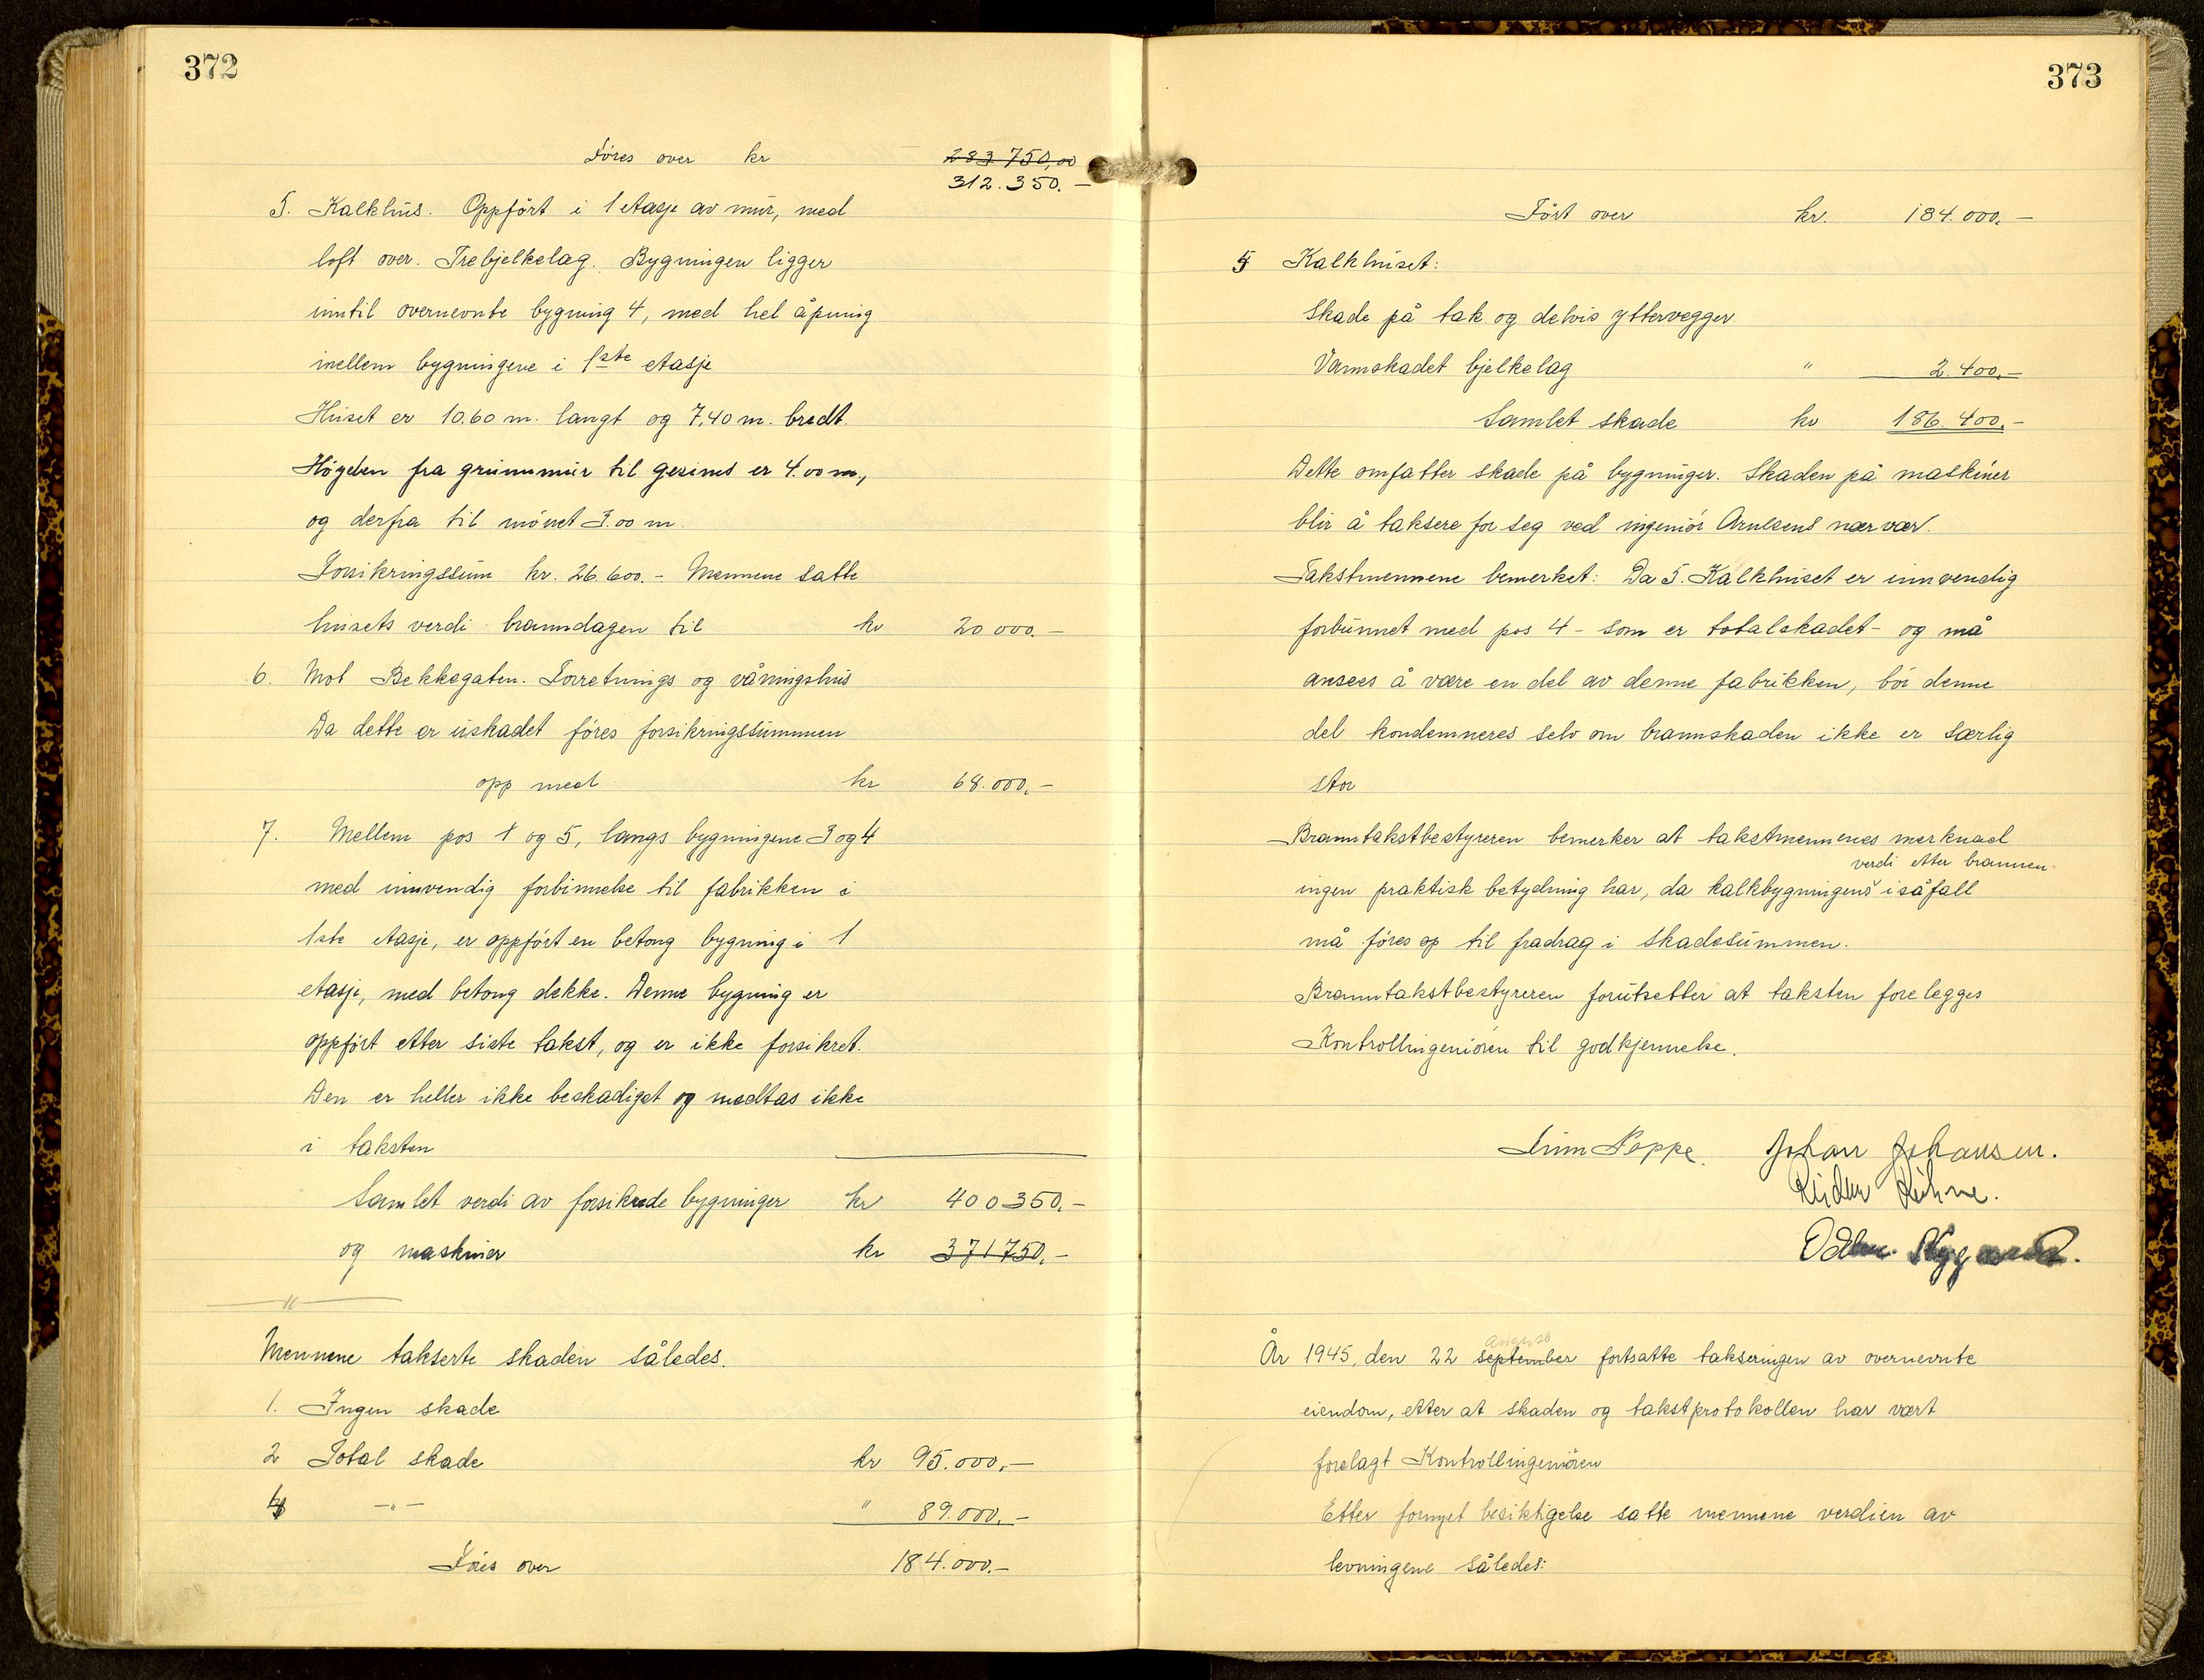 372
Föres over kr 283 750,00
312.350.—
5. Kalkhus. Oppfört i 1 etasje av mur, med
loft over. Trebjelkelag. Bygningen ligger
inntil overnevnte bygning 4, med hel åpning
mellem bygningene i 1ste etasje
Huset er 10.60 m. langt og 7,40 m. bredt.
Högden fra grunnmur til gesims er 4.00 m,
og derfra til mönet 3.00 m.
Forsikringssum kr. 26.600.- Mennene satte
husets verdi branndagen til kr 20 000.—
6. Mot Bekkegaten. Forretnings og våningshus
Da dette er uskadet föres forsikringssummen
opp med kr 68.000,—
7. Mellem pos 1 og 5, langs bygningene 3 og 4
med innvendig forbinnelse til fabrikken i
1ste etasje, er oppfört en betong bygning i 1
etasje, med betong dekke. Denne bygning er
oppfört etter siste takst, og er ikke forsikret.
Den er heller ikke beskadiget og medtas ikke
i taksten
Samlet verdi av forsikrede bygninger kr 400350,—
og maskiner kr 371750,—
—"—
Mennene takserte skaden således.
1. Ingen skade
2 Total skade kr 95.000,—
4 —"— " 89.000.—
Föres over 184.000.—
373
Fört over kr. 184.000.—
5 Kalkhuset:
Skade på tak og delvis yttervegger
Vannskadet bjelkelag " 2.400,—
Samlet skade kr 186.400.—
Dette omfatter skade på bygninger. Skaden på maskiner
blir å taksere for seg ved ingeniör Arnesens nærvær.
Takstmennene bemerket: Da 5. Kalkhuset er innvendig
forbunnet med pos 4 – som er totalskadet – og må
ansees å være en del av denne fabrikken, bör denne
del kondemneres selv om brannskaden ikke er særlig
stor
Branntakstbestyreren bemerker at takstmennenes merknad
verdi etter brannen
ingen praktisk betydning har, da kalkbygningens i såfall
må föres op til fradrag i skadesummen.
Branntakstbestyreren forutsetter at taksten forelegges
Kontrollingeniören til godkjennelse.
Johan Johansen.
Reidar Kühne.
År 1945, den 22 september fortsatte takseringen av overnevnte
august
eiendom, etter at skaden og takstprotokollen har vært
forelagt Kontrollingeniören
Etter fornyet besiktigelse satte mennene verdien av
levningene således: